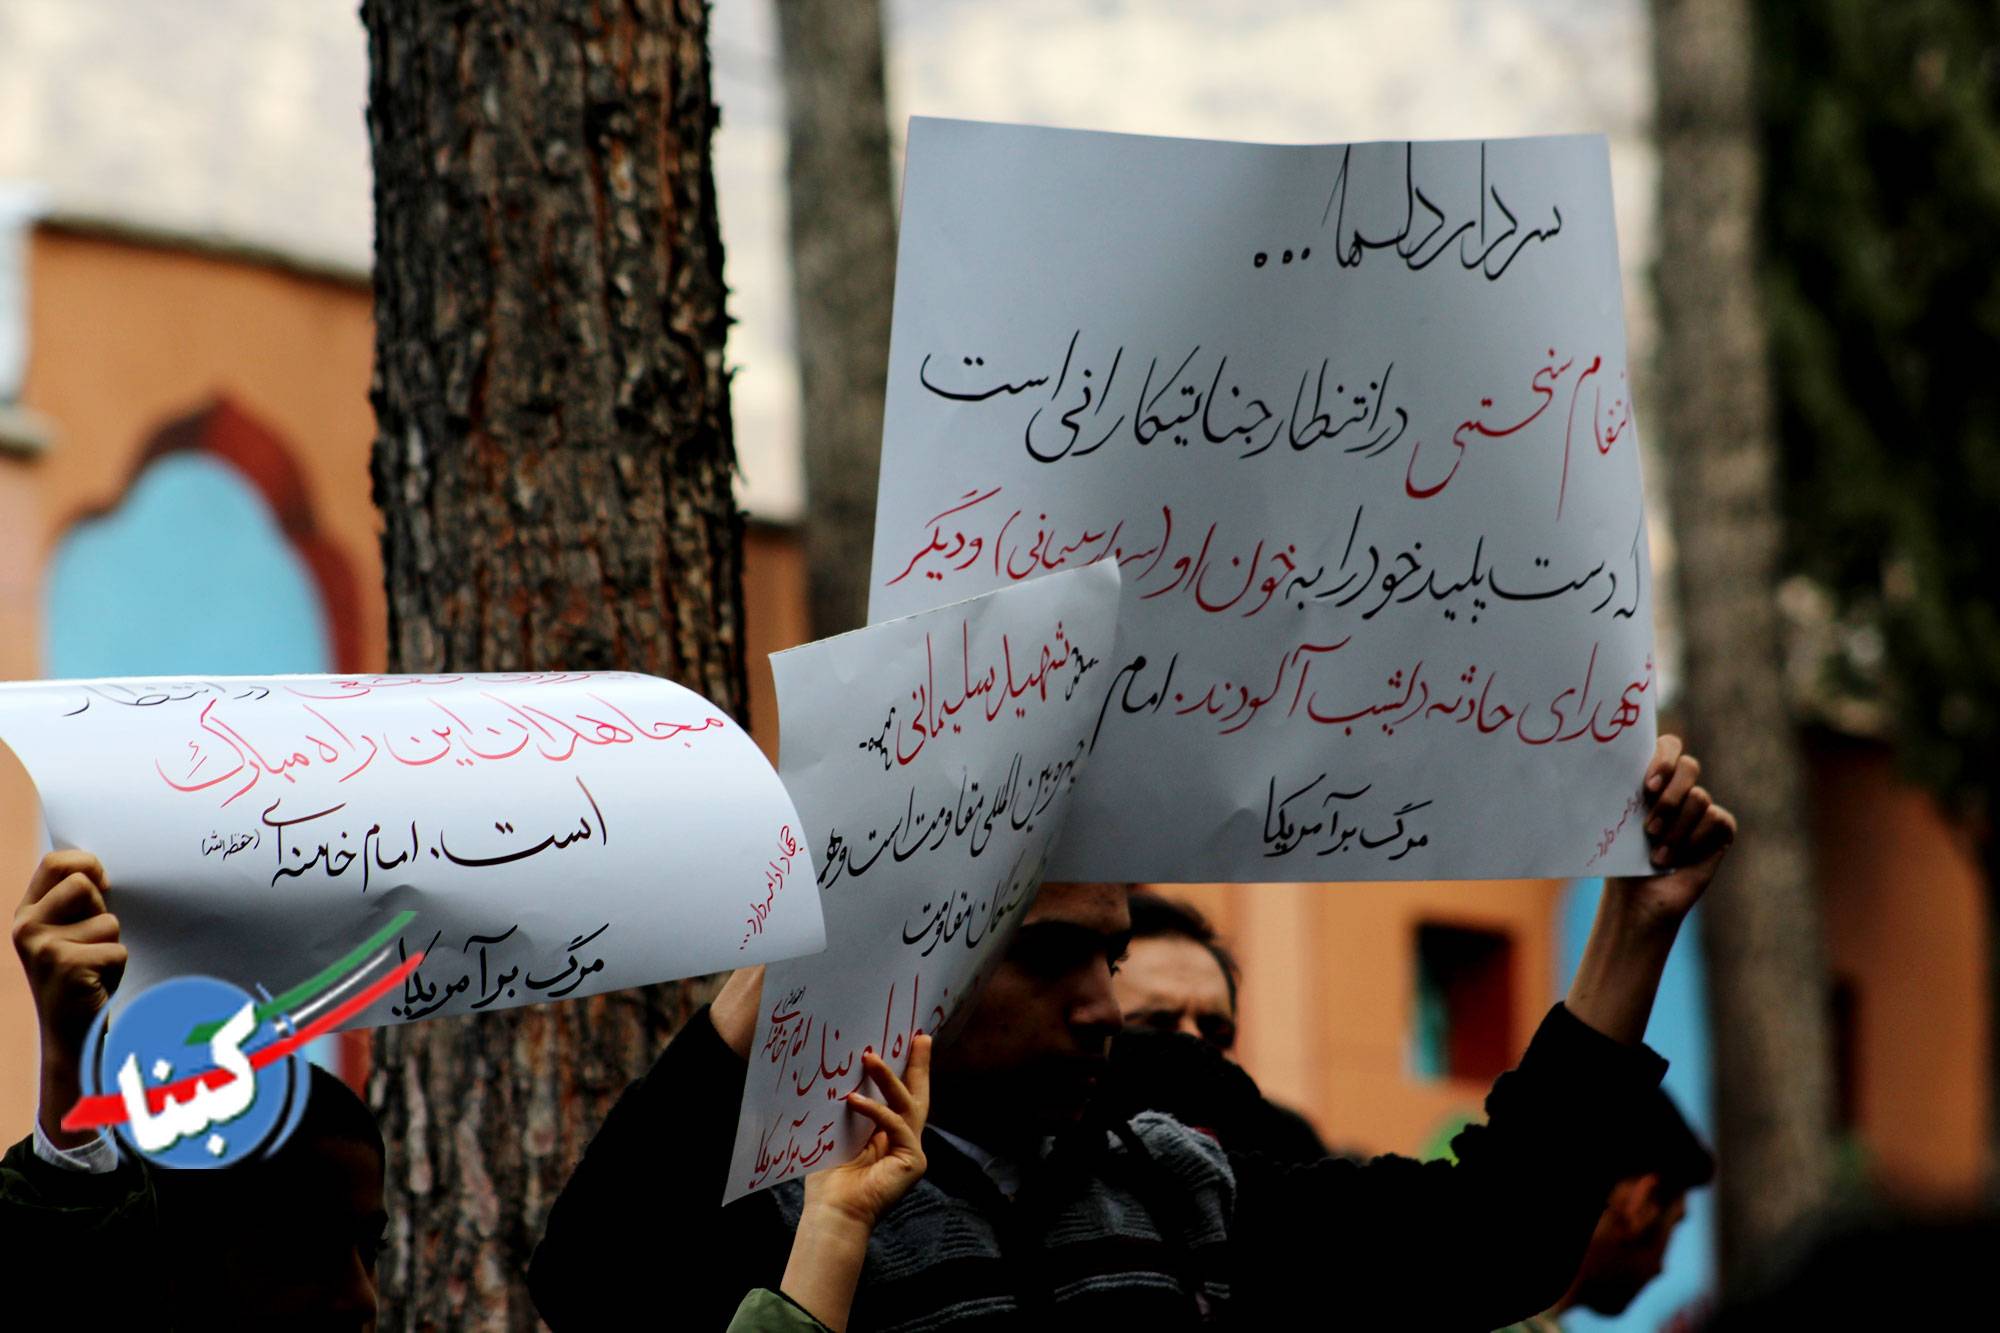 سردار دلها ...
انتقام سختی در انتظار جنایتکارانی است
که دست پلید خود را به خون او (سردار سلیمانی) و دیگر
شهدای حادثه دیشب آلودند. امام
مرگ بر آمریکا
دارد...
شهید سلیمانی
چهره بین المللی مقاومت است و همه
مقاومت
خواه او یند. امام خامنه ای
مرگ بر آمریکا
در انتظار
مجاهدان این راه مبارک
است. امام خامنه ای (حفظه الله)
جهاد ادامه دارد...
مرگ بر آمریکا
کبنا